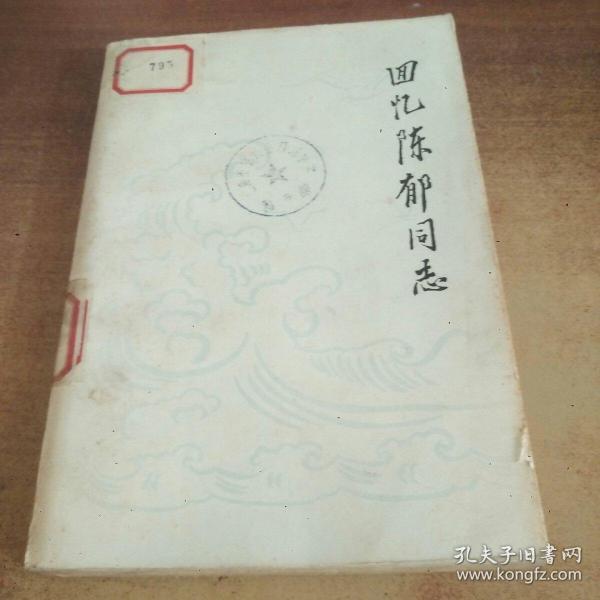 795
回忆陈郁同志
孔夫子旧书网
www.kongfz.com